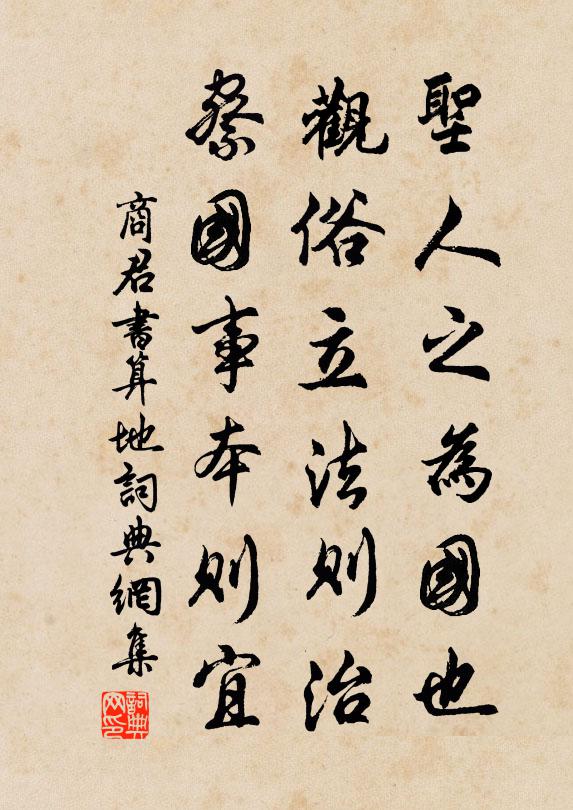 聖人之為國也
觀俗立法則治
察國事本則宜
商君書算地詞典網集
詞典
网印